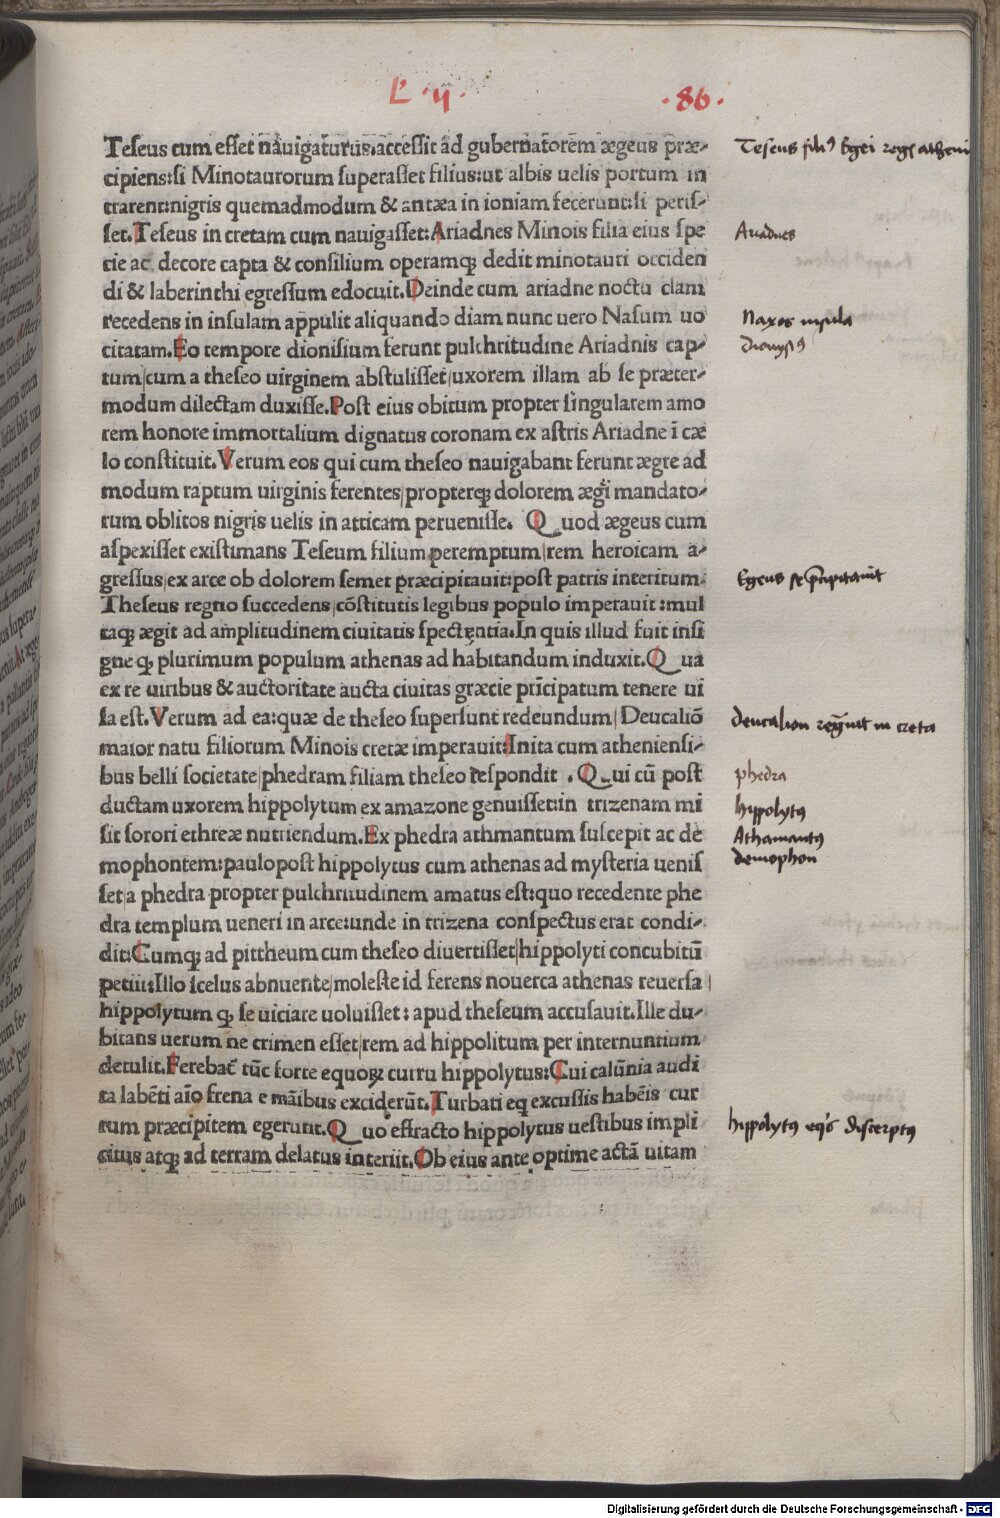 L. ij.
.86.
Teseus cum esset nauigaturus: accessit ad gubernatorem ægeus præ-
cipiens: si Minotaurorum superasset filius: ut albis uelis portum in
trarent: nigris quemadmodum & antæa in ioniam fecerunt: si peris-
set. Teseus in cretam cum nauigasset: Ariadnes Minois filia eius spe
cie ac decore capta & consilium operamqꝫ dedit minotauri occiden
di & laberinthi egressum edocuit. Deinde cum ariadne noctu clam
recedens in insulam appulit aliquando diam nunc uero Nasum uo
citatam. Eo tempore dionisium ferunt pulchritudine Ariadnis cap-
tum cum a theseo uirginem abstulisset uxorem illam ab se præter-
modum dilectam duxisse. Post eius obitum propter singularem amo
rem honore immortalium dignatus coronam ex astris Ariadne ī cæ
lo constituit. Verum eos qui cum theseo nauigabant ferunt ægre ad
modum raptum uirginis ferentes propterqꝫ dolorem ægi mandato-
rum oblitos nigris uelis in atticam peruenisse. Quod ægeus cum
aspexisset existimans Teseum filium peremptum rem heroicam a-
gressus ex arce ob dolorem semet præcipitauit: post patris interitum
Theseus regno succedens cōstitutis legibus populo imperauit: mul
taqꝫ ægit ad amplitudinem ciuitatis spectentia. In quis illud fuit insi
gne ꝙ plurimum populum athenas ad habitandum induxit. Qua
ex re uiribus & auctoritate aucta ciuitas græcie prīcipatum tenere ui
sa est. Verum ad ea: quæ de theseo supersunt redeundum Deucaliō
maior natu filiorum Minois cretæ imperauit: Inita cum atheniensi-
bus belli societate phedram filiam theseo despondit. Qui cū post
ductam uxorem hippolytum ex amazone genuisset: in trizenam mi
sit sorori ethreæ nutriendum. Ex phedra athmantum suscepit ac de
mophontem: paulo post hippolytus cum athenas ad mysteria uenis
set a phedra propter pulchritudinem amatus est: quo recedente phe
dra templum ueneri in arce: unde in trizena conspectus erat condi-
dit: Cumqꝫ ad pittheum cum theseo diuertisset hippolyti concubitū
petiit: Illo scelus abnuente moleste id ferens nouerca athenas reuersa
hippolytum ꝙ se uiciare uoluisset: apud theseum accusauit. Ille du-
bitans uerum ne crimen esset rem ad hippolitum per internuntium
detulit. Ferebat̄ tūc forte equoꝝ curru hippolytus: Cui calūnia audi
ta labēti aīo frena e māibus exciderūt. Turbati eq excussis habēis cur
rum præcipitem egerunt. Quo effracto hippolytus uestibus impli
citus atqꝫ ad terram delatus interiit. Ob eius ante optime actā uitam
Teseus filiꝰ Egei regis atheni
Ariadnes
Naxos insula
dionysiꝰ
Egeus se p̄cipitauit
deucalion regnuit in creta
phedra
hippolytꝰ
Athamantꝰ
demophon
hippolytꝰ eqis discerptꝰ
Digitalisierung gefördert durch die Deutsche Forschungsgemeinschaft - DFG